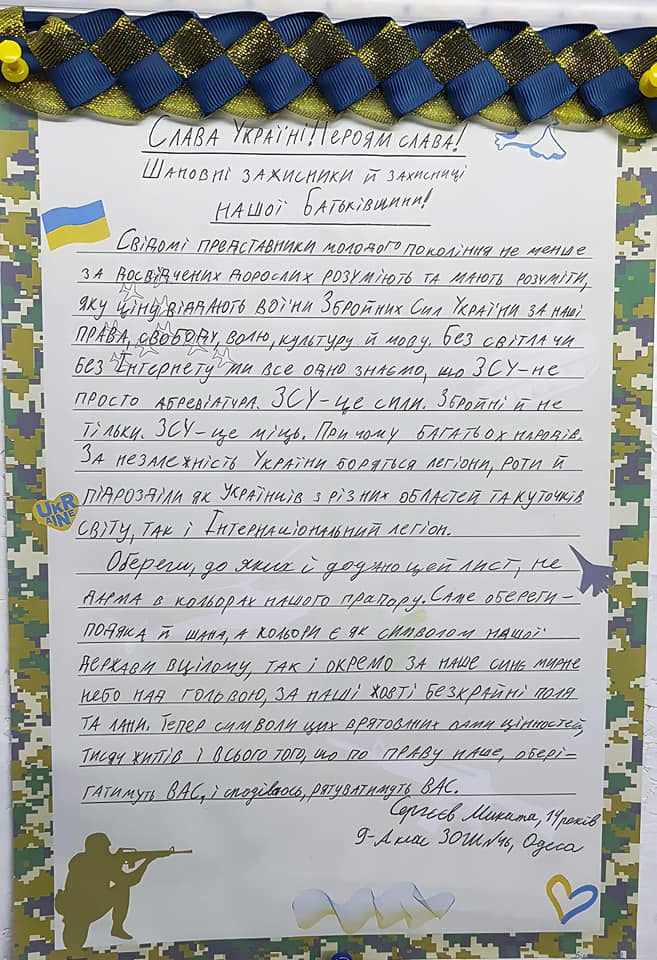 Слава Україні! Героям слава!
Шановні захисники й захисниці
нашої Батьківщини!
Свідомі представники молодого покоління не менше
за досвідчених дорослих розуміють та мають розуміти,
яку ціну віддають воїни Збройних Сил України за наші
права, свободу, волю, культуру й мову. Без світла чи
без Інтернету ми все одно знаємо, що ЗСУ – не
просто абревіатура. ЗСУ – це сили. Збройні й не
тільки. ЗСУ – це міць. При чому багатьох народів.
За незалежність України боряться легіони, роти й
підрозділи як Українців з різних областей та куточків
світу, так і Інтернаціональний легіон.
Обереги, до яких і додано цей лист, не
дарма в кольорах нашого прапору. Саме обереги –
подяка й шана, а кольори є як символом нашої
держави вцілому, так і окремо за наше синє мирне
небо над головою, за наші жовті безкрайні поля
та лани. Тепер символи цих врятованих вами цінностей,
тисяч життів і всього того, що по праву наше, обері-
гатимуть ВАС, і сподіваюсь, рятуватимуть ВАС.
Сергєєв Микита, 14 років
9-А клас ЗОШ №46, Одеса
UKR
AINE